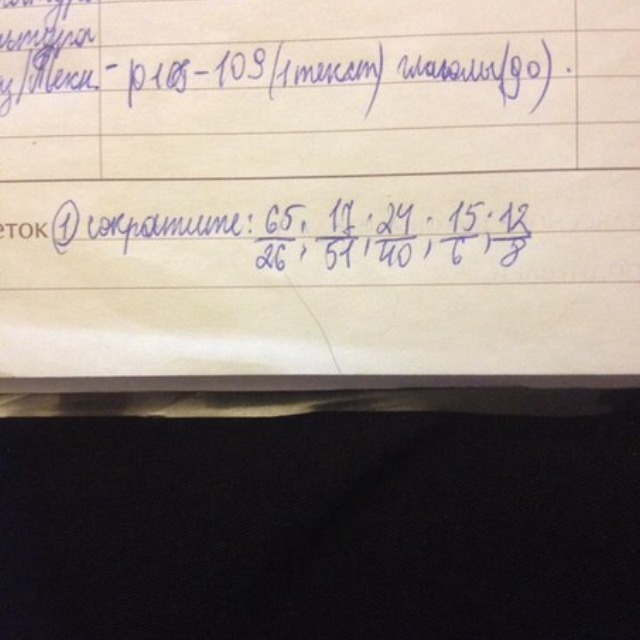 ьтура
р 108-109 (1 текст) глаголы (до).
еток ① сократите: 65/26; 17/51; 24/40; 15/6; 12/8